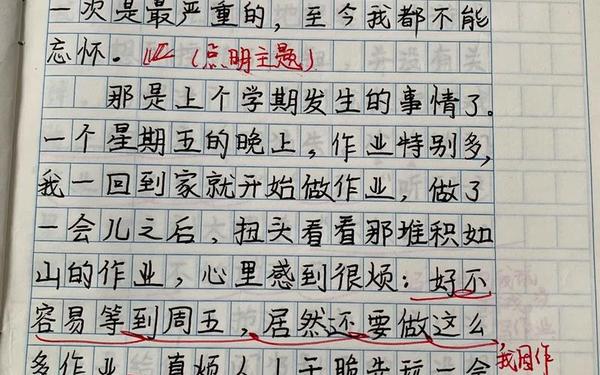 一次是最严重的，至今我都不能
忘怀。（点明主题）
那是上个学期发生的事情了。
一个星期五的晚上，作业特别多，
我一回到家就开始做作业，做了
一会儿之后，扭头看看那堆积如
山的作业，心里感到很烦：好不
容易等到周五，居然还要做这么
多作业，真烦人！干脆先玩一会
我因作